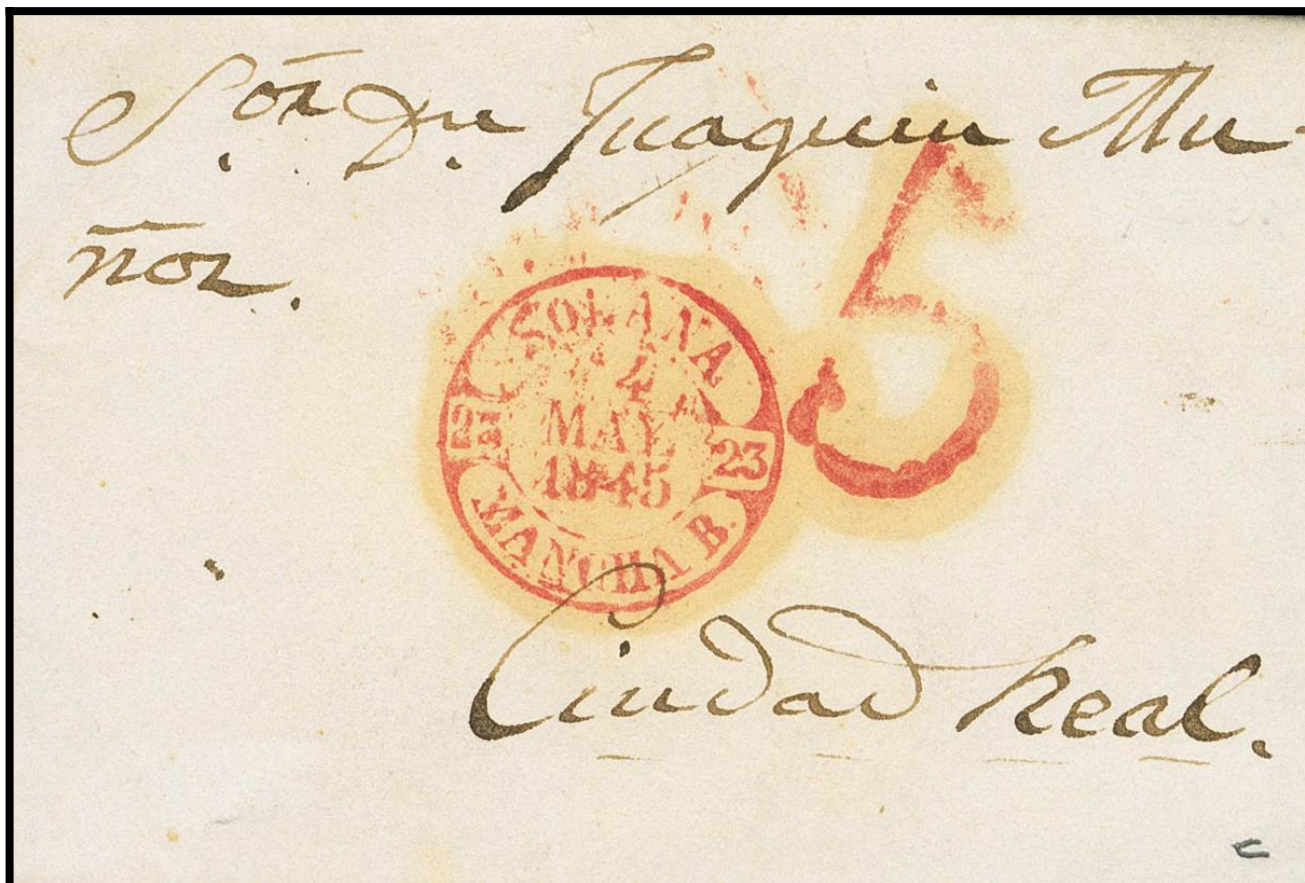 Sor. Dn. Juaquin Mu-
ñoz.
5
SOLANA
4
MAY.
1845
23
23
MANCHA B.
Ciudad Real.